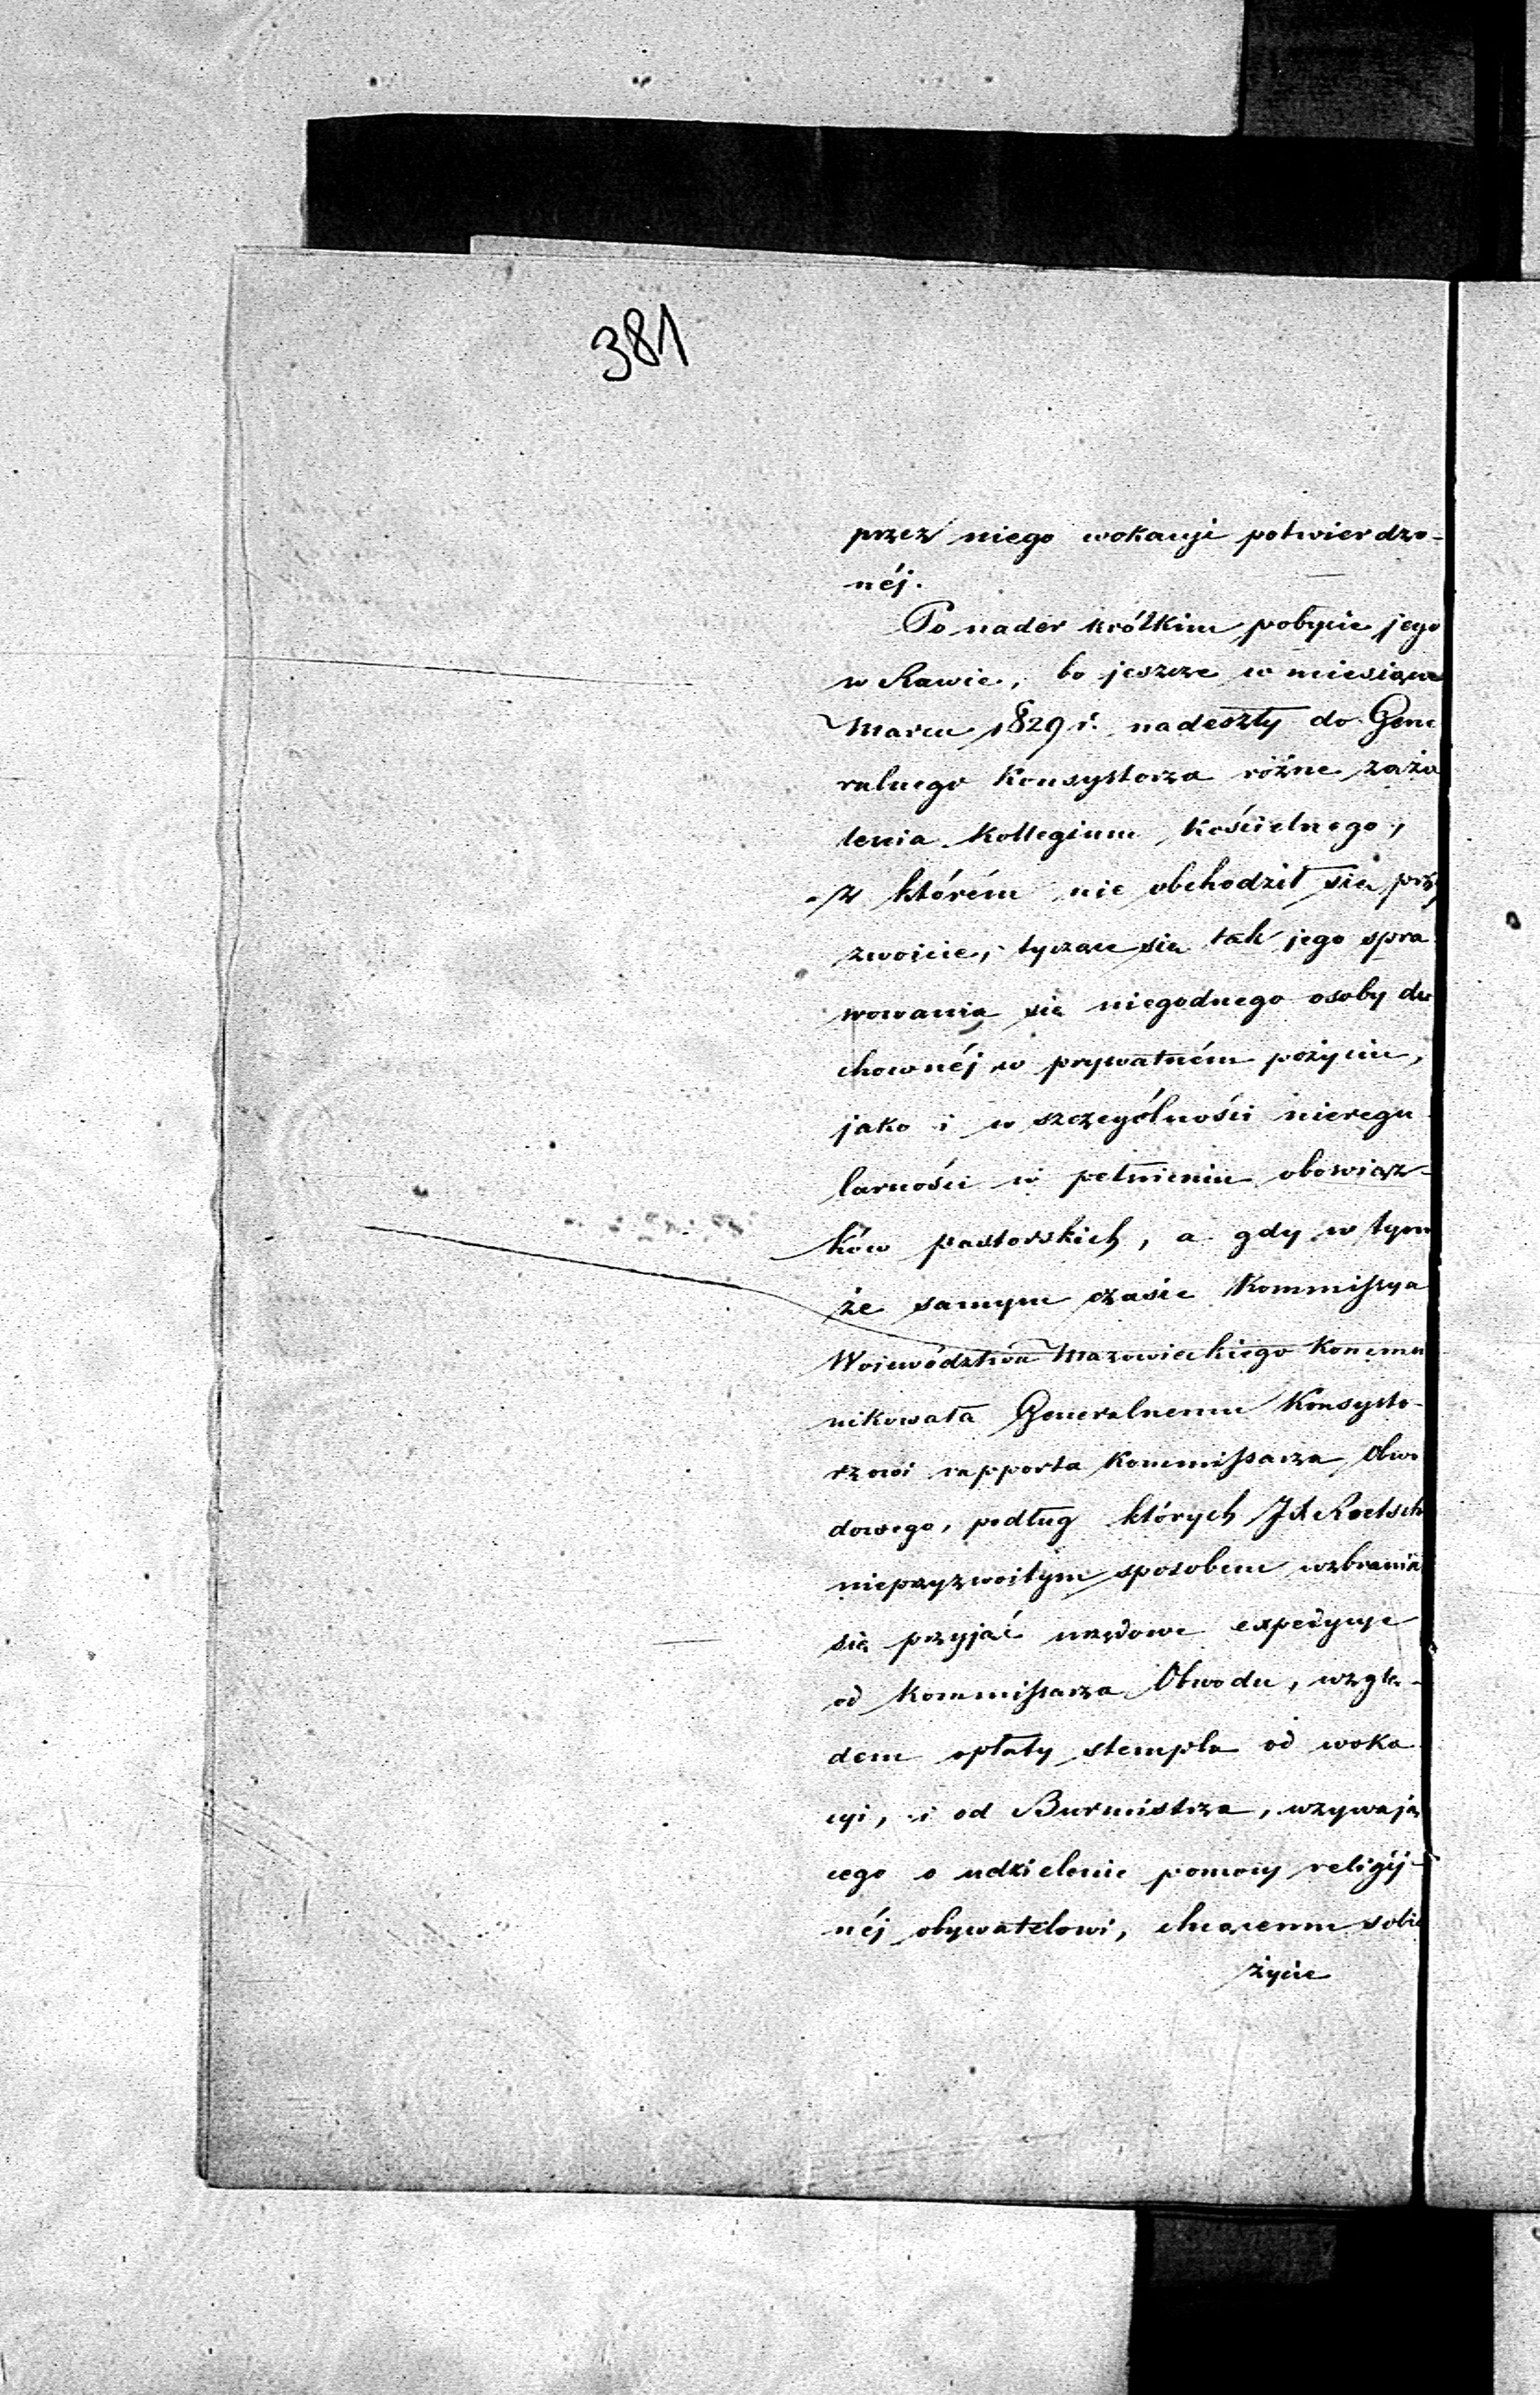 381
przez niego wokacyi potwierdzo-
néj.
Po nader krótkim pobycie jego
w Rawie, bo jeszcze w miesiącu
Marcu 1829 r. nadeszły do Gene
ralnego Konsystorza różne zaża
lenia Kollegium Kościelnego,
z którém nie obchodził się przy
zwoicie, tyczące się tak jego spra
wowania się niegodnego osoby du
chownéj w prywatném pożyciu,
jako i w szczególności nieregu
larności w pełnieniu obowiąz-
ków pastorskich, a gdy w tym
że samym czasie Kommissya
Województwa Mazowieckiego Kommu
nikowała Generalnemu Konsysto-
rzowi rapporta Kommissarza Obwo
dowego, podług których JX Roetsch
nieprzyzwoitym sposobem wzbraniał
się przyjąć urzędowe expedycye
od Kommissarza Obwodu, wzglę-
dem opłaty stempla od woka
cyi, i od Burmistrza, wzywają
cego o udzielenie pomocy religij-
néj obywatelowi, chcącemu sobie
życie